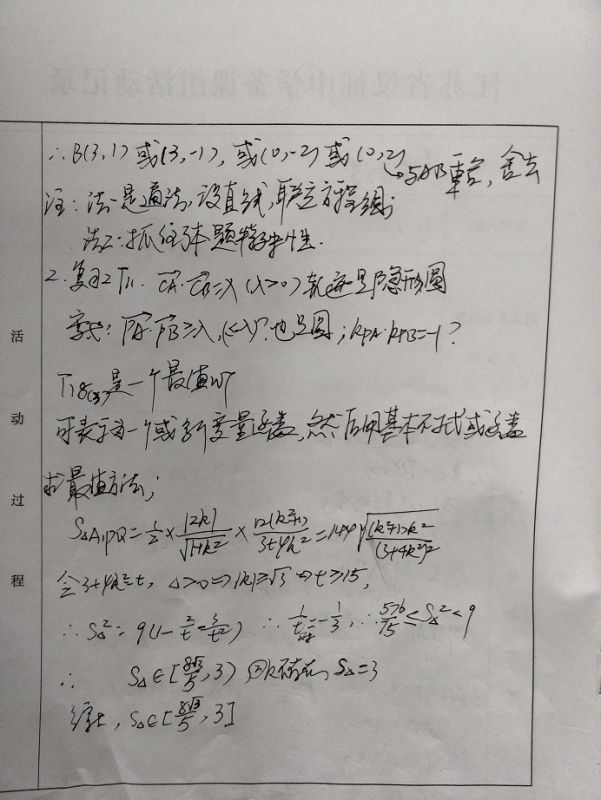 ∴ B(3,1) 或 (3,-1), 或 (0,-2) 或 (0,2)
与A、B重合, 舍去
注: 法一是通法, 设直线, 联立方程组;
法二: 抓住本题特殊性.
2. 复习2 T11. CA·CB=λ (λ>0) 轨迹是隐形圆
变式: PA·PB≥λ, (≤λ)? 也是圆; kPA·kPB=-1?
T18(3)是一个最值
可表示为一个或多个变量函数, 然后用基本不等式或函数
求最值方法;
S△A1PQ = 1/2 × |2k|/√(1+k²) × 12(k²+1)/(3+4k²) = 12 √((k²+1)k²/(3+4k²)²)
令3+4k²=t, △>0 ⇒ |k|≥√3 ⇒ t≥15,
∴ S△² = 9(1-2/t-3/t²) ∴ ∴ 576/75 ≤ S△² < 9
∴ S△∈[8√3/5, 3) 因k不存在, S△=3
综上, S△∈[8√3/5, 3]
活
动
过
程